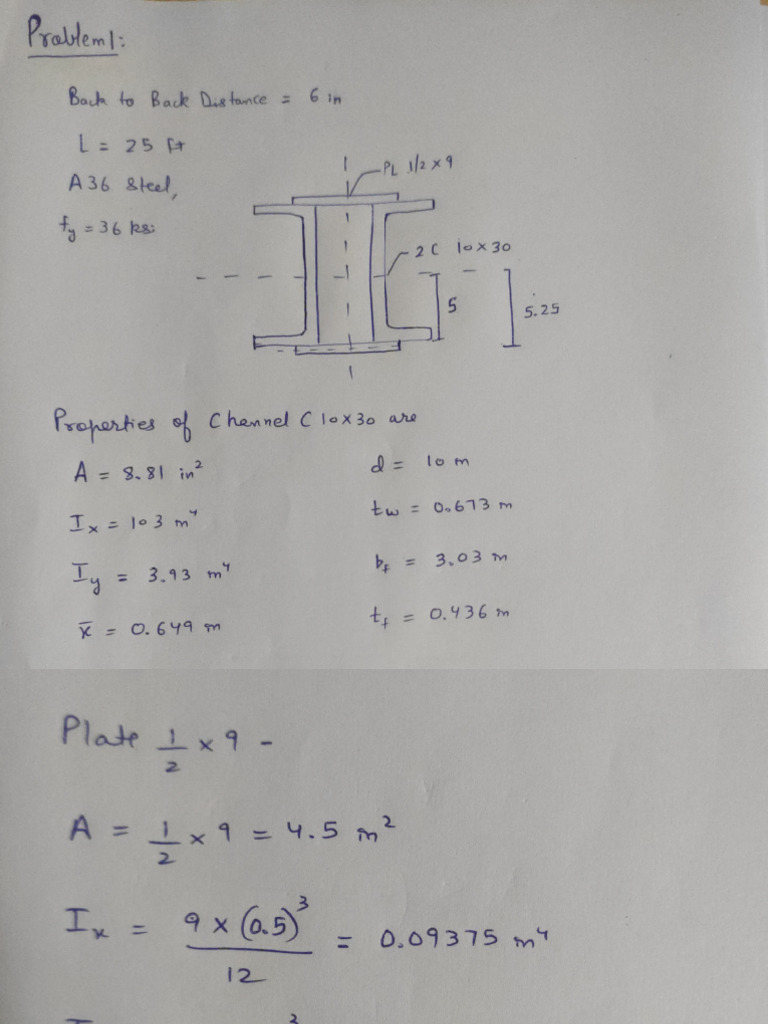 Problem 1:
Back to Back Distance = 6 in
L = 25 ft
A36 Steel,
fy = 36 ksi
PL 1/2 x 9
2C 10x30
5
5.25
Properties of Channel C 10x30 are
A = 8.81 in²
d = 10 in
Ix = 103 in⁴
tw = 0.673 in
Iy = 3.93 in⁴
bf = 3.03 in
x̄ = 0.649 in
tf = 0.436 in
Plate 1/2 x 9 -
A = 1/2 x 9 = 4.5 in²
Ix = 9 x (0.5)³ / 12 = 0.09375 in⁴